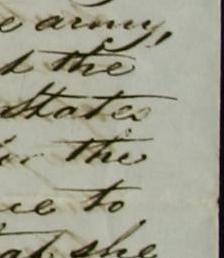 e army,
d the
States
the
ue to
she